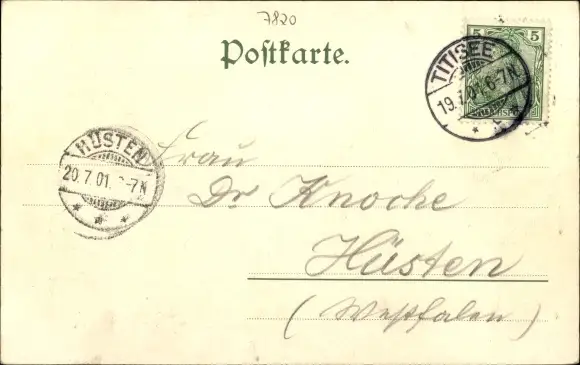 7820
Postkarte.
5 5
TITISEE
19.7.01. 6-7N.
HÜSTEN
20.7.01. 6-7N
* * *
Frau
Dr Knoche
Hüsten
(Westfalen)